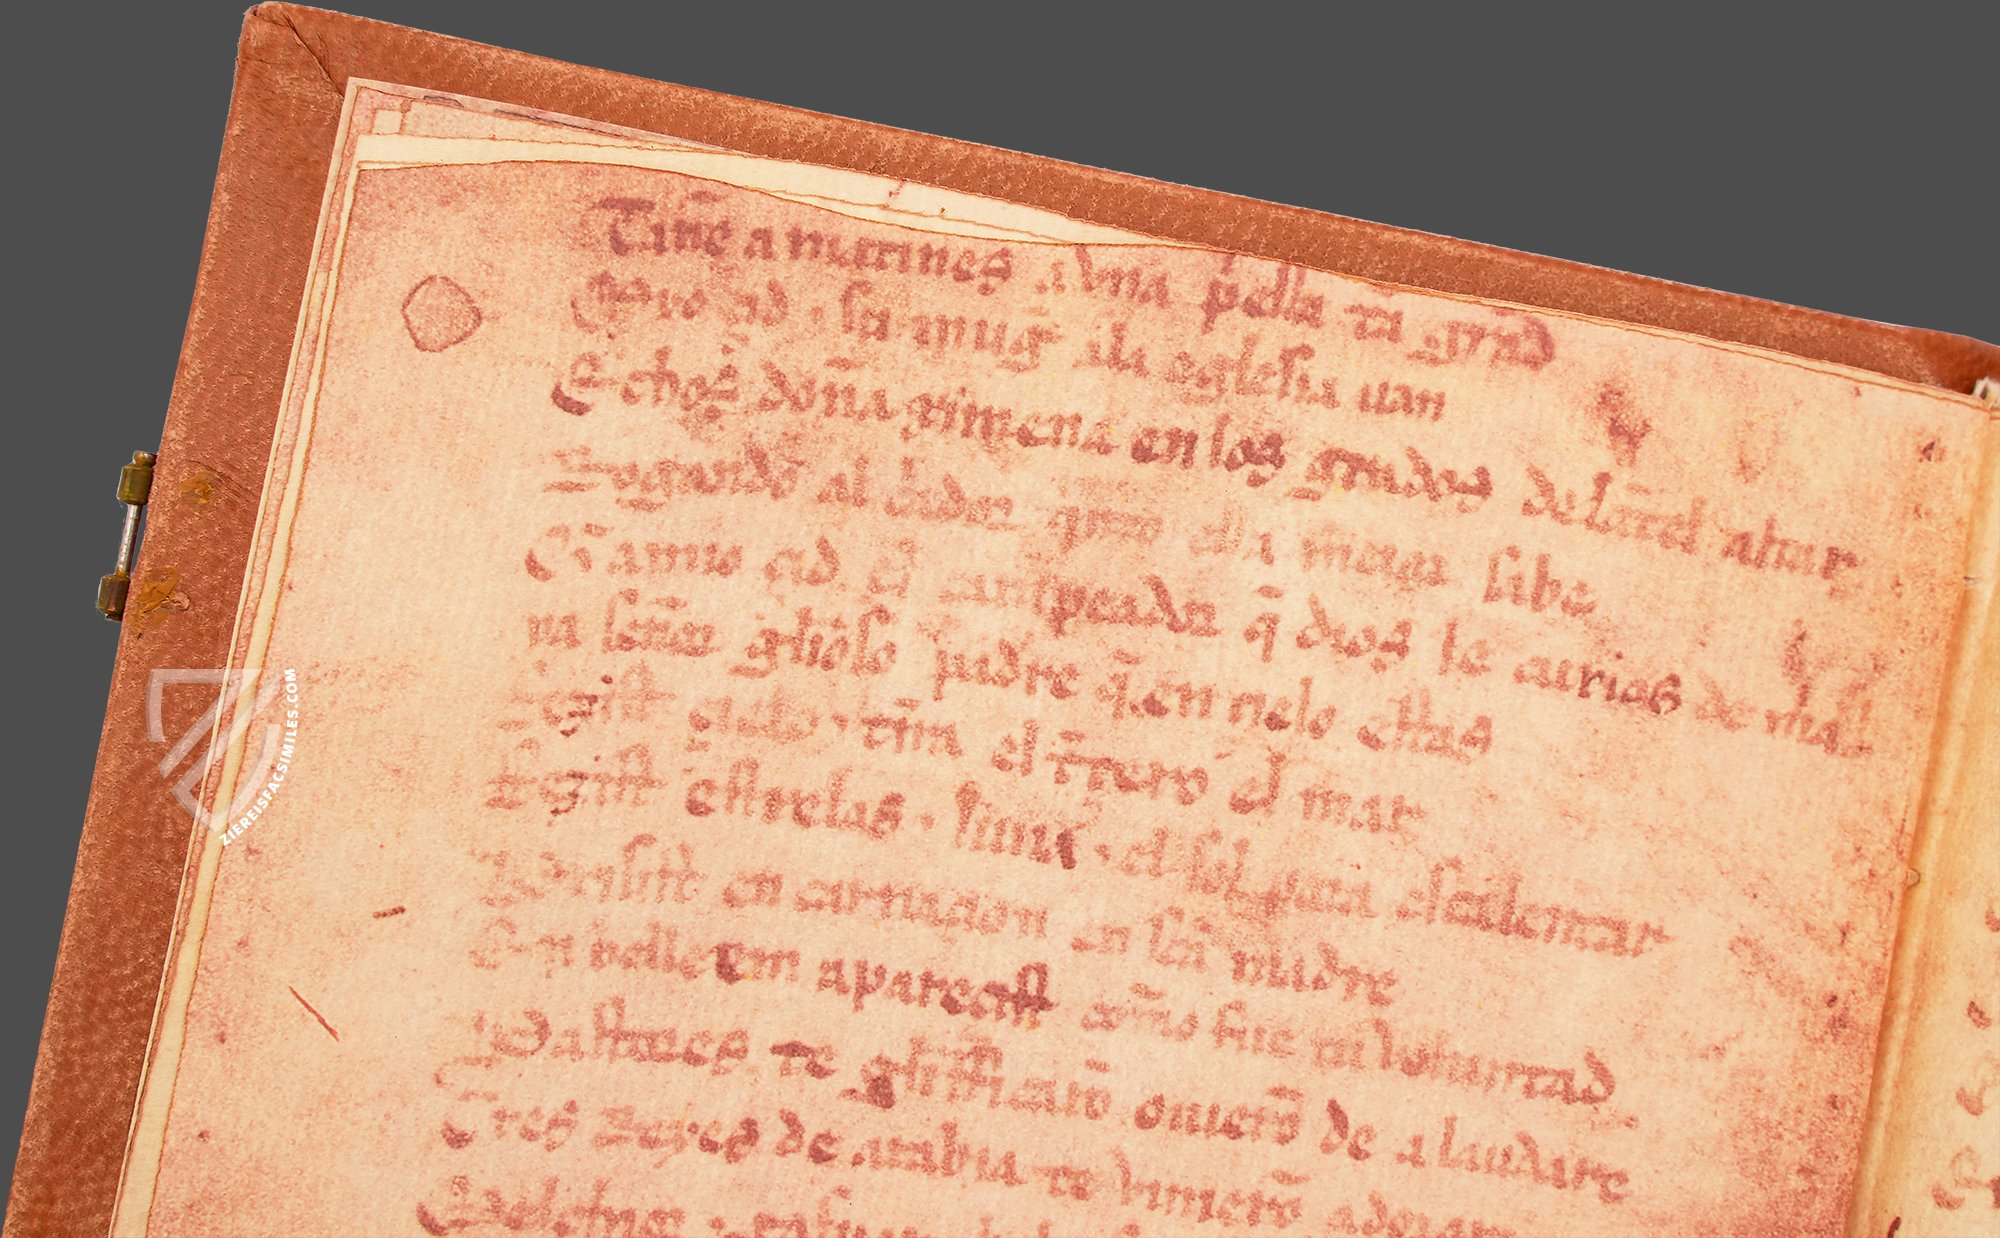 Tañe a matines a vna p̄essa tā gr̄ad
Myo çid ⁊ su mug̃ ala eglesia uan
Echos̃ doña ximena en los grados delant̃ el altar
Rogando al c̃ador quãto ella meior sabe
Q̃ amio çid el campeador q̃ dios le curias de mal
ya señor gl̃ioso padre q̃ en çielo estas
Fezist çielo ⁊ tr̃ra el t̃çero el mar
Fezist estrelas ⁊ luna ⁊ el sol pora escalentar
Prisist̃ encarnaçion en sc̃a madre
En belleem apareçist com̃o fue tu voluntad
Pastores te gl̃ifficarõ ouierõ de alaudare
Tres Reyes de arabia te vinierõ adorar
Melchior
ZIEREISFACSIMILES.COM